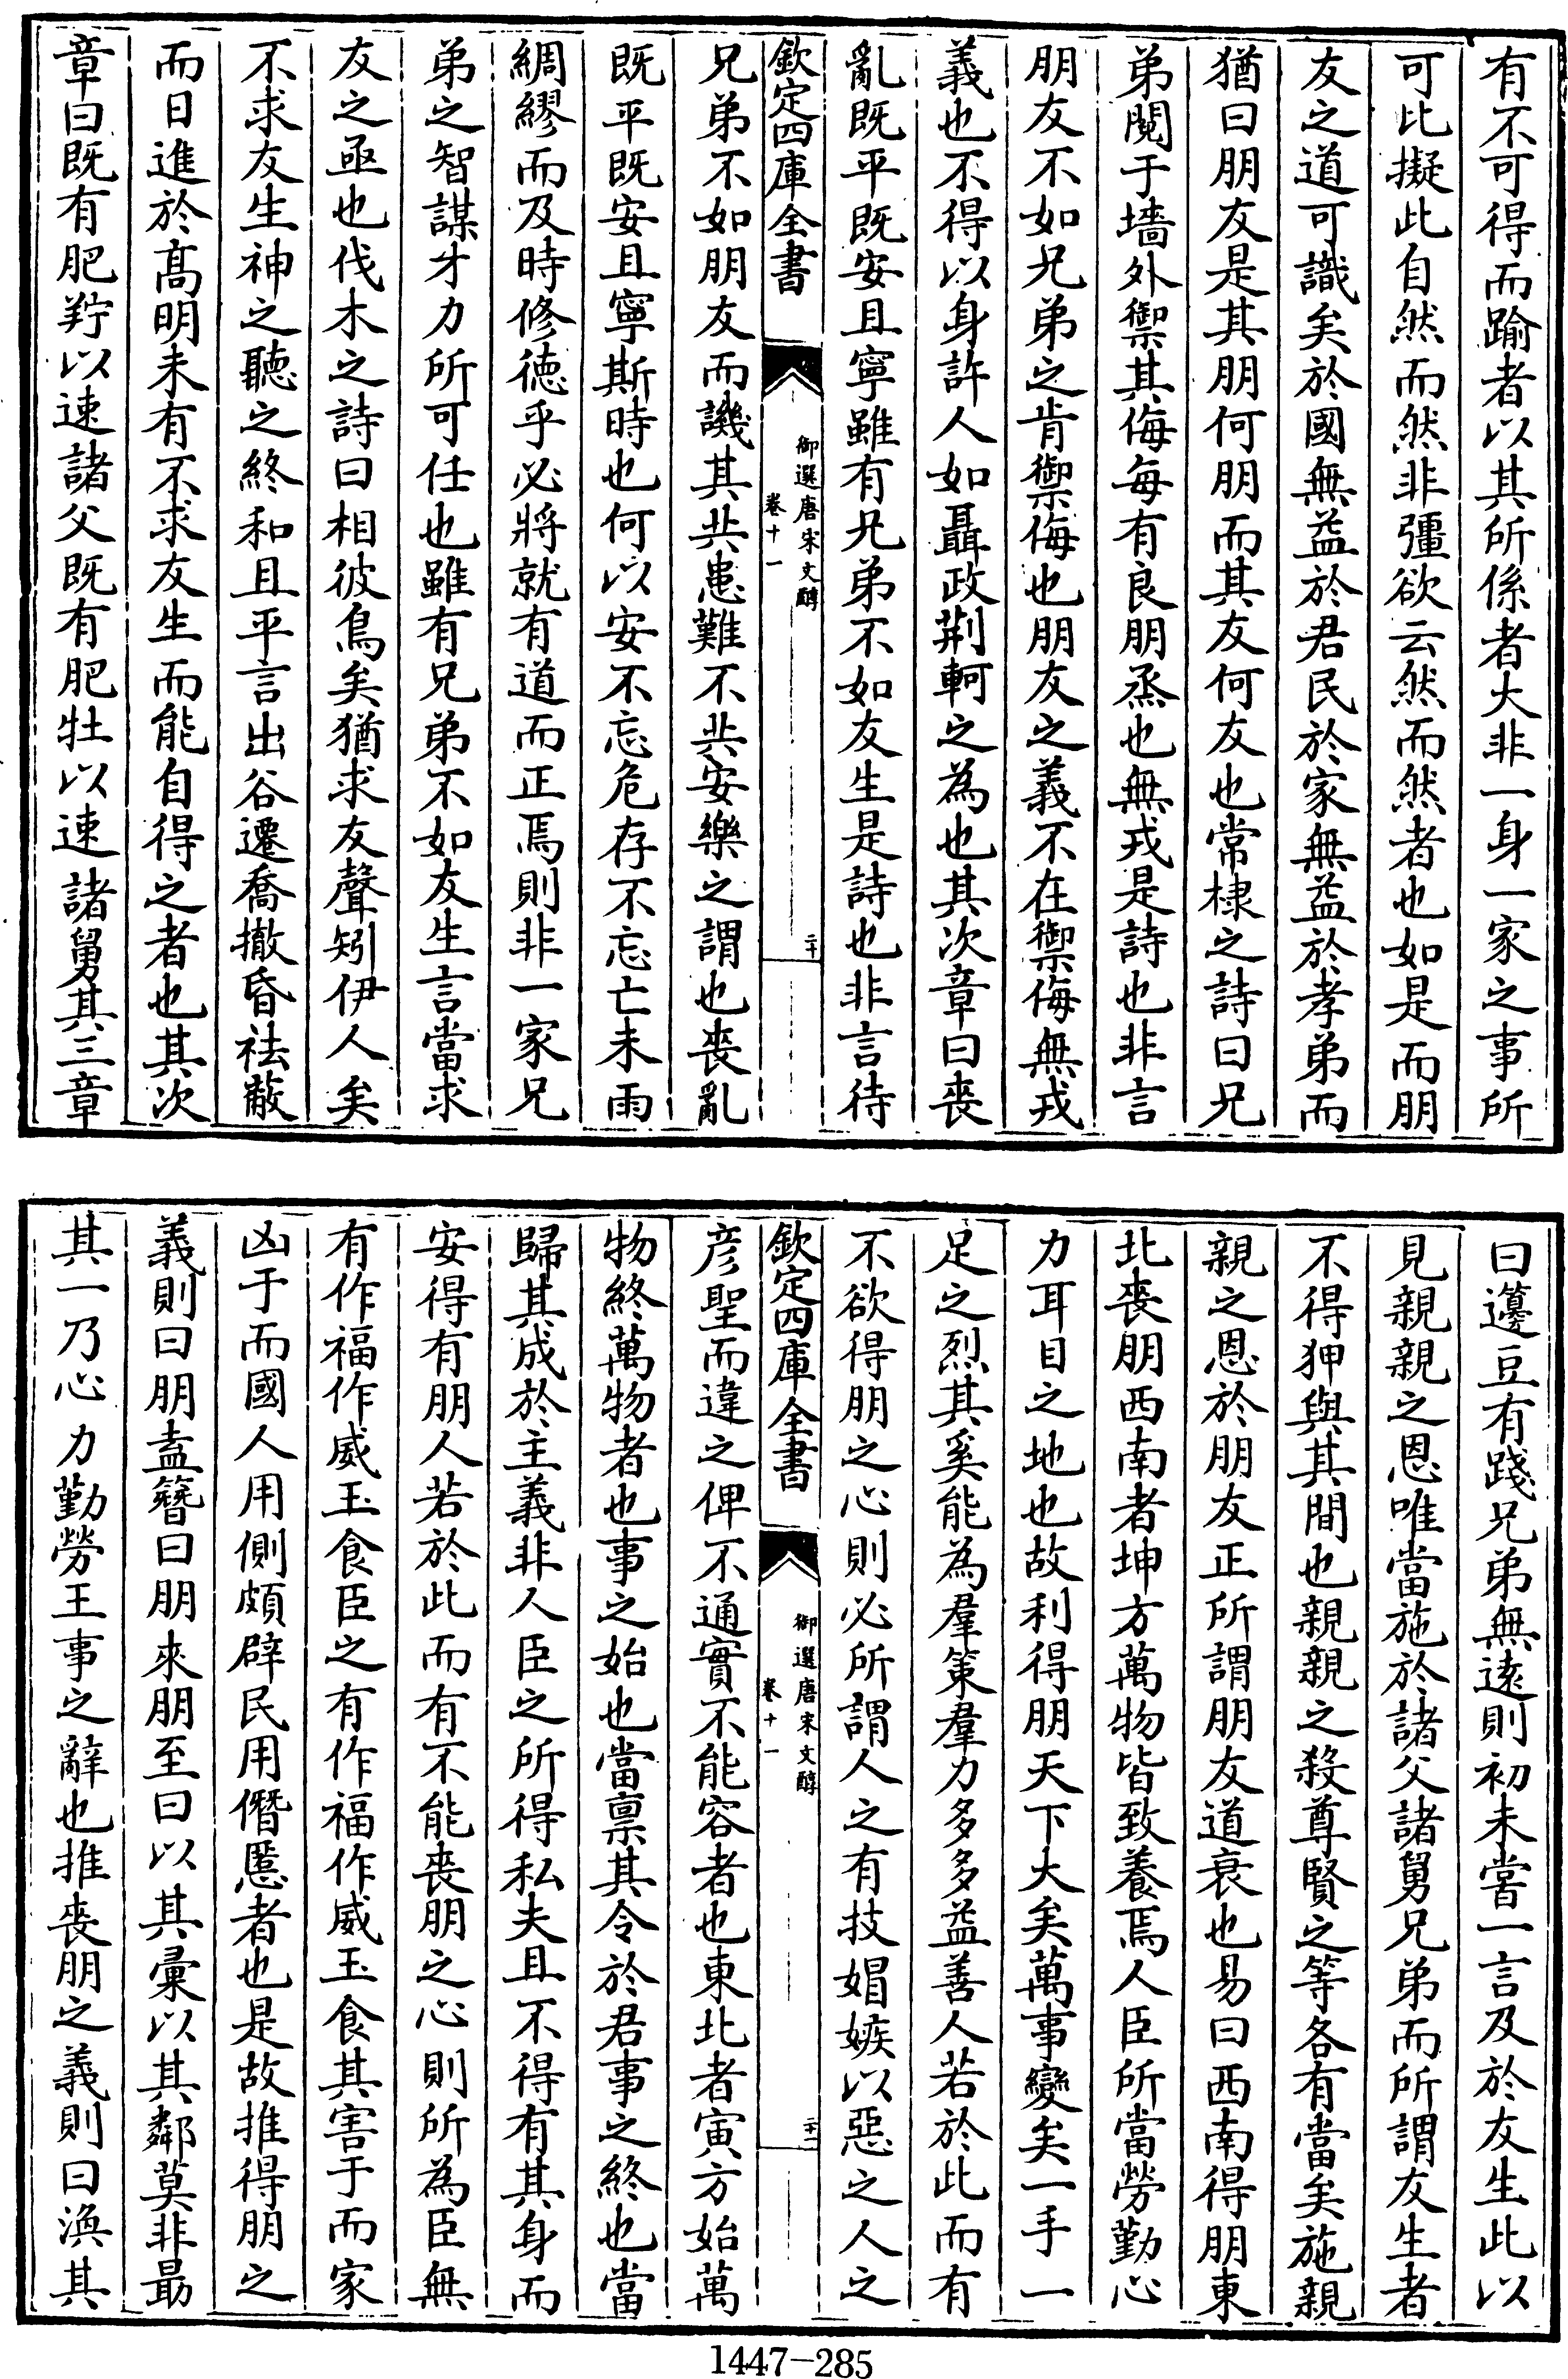 有不可得而踰者以其所係者大非一身一家之事所
可比擬此自然而然非彊欲云然而然者也如是而朋
友之道可識矣於國無益於君民於家無益於孝弟而
猶曰朋友是其朋何朋而其友何友也常棣之詩曰兄
弟鬩于墻外禦其侮每有良朋烝也無戎是詩也非言
朋友不如兄弟之肯禦侮也朋友之義不在禦侮無戎
義也不得以身許人如聶政荆軻之為也其次章曰喪
亂既平既安且寧雖有兄弟不如友生是詩也非言待
欽定四庫全書
御選唐宋文醇
卷十一
二十
兄弟不如朋友而譏其共患難不共安樂之謂也喪亂
既平既安且寧斯時也何以安不忘危存不忘亡未雨
綢繆而及時修德乎必將就有道而正焉則非一家兄
弟之智謀才力所可任也雖有兄弟不如友生言當求
友之亟也伐木之詩曰相彼鳥矣猶求友聲矧伊人矣
不求友生神之聽之終和且平言出谷遷喬撤昏祛蔽
而日進於髙明未有不求友生而能自得之者也其次
章曰既有肥羜以速諸父既有肥牡以速諸舅其三章
曰籩豆有踐兄弟無逺則初未嘗一言及於友生此以
見親親之恩唯當施於諸父諸舅兄弟而所謂友生者
不得狎與其間也親親之殺尊賢之等各有當矣施親
親之恩於朋友正所謂朋友道衰也易曰西南得朋東
北喪朋西南者坤方萬物皆致養焉人臣所當勞勤心
力耳目之地也故利得朋天下大矣萬事變矣一手一
足之烈其奚能為羣策羣力多多益善人若於此而有
不欲得朋之心則必所謂人之有技媢嫉以惡之人之
欽定四庫全書
御選唐宋文醇
卷十一
二十一
彦聖而違之俾不通實不能容者也東北者寅方始萬
物終萬物者也事之始也當禀其令於君事之終也當
歸其成於主義非人臣之所得私夫且不得有其身而
安得有朋人若於此而有不能喪朋之心則所為臣無
有作福作威玉食臣之有作福作威玉食其害于而家
凶于而國人用側頗辟民用僭慝者也是故推得朋之
義則曰朋盍簪曰朋來朋至曰以其彙以其鄰莫非勗
其一乃心力勤勞王事之辭也推喪朋之義則曰渙其
1447-285